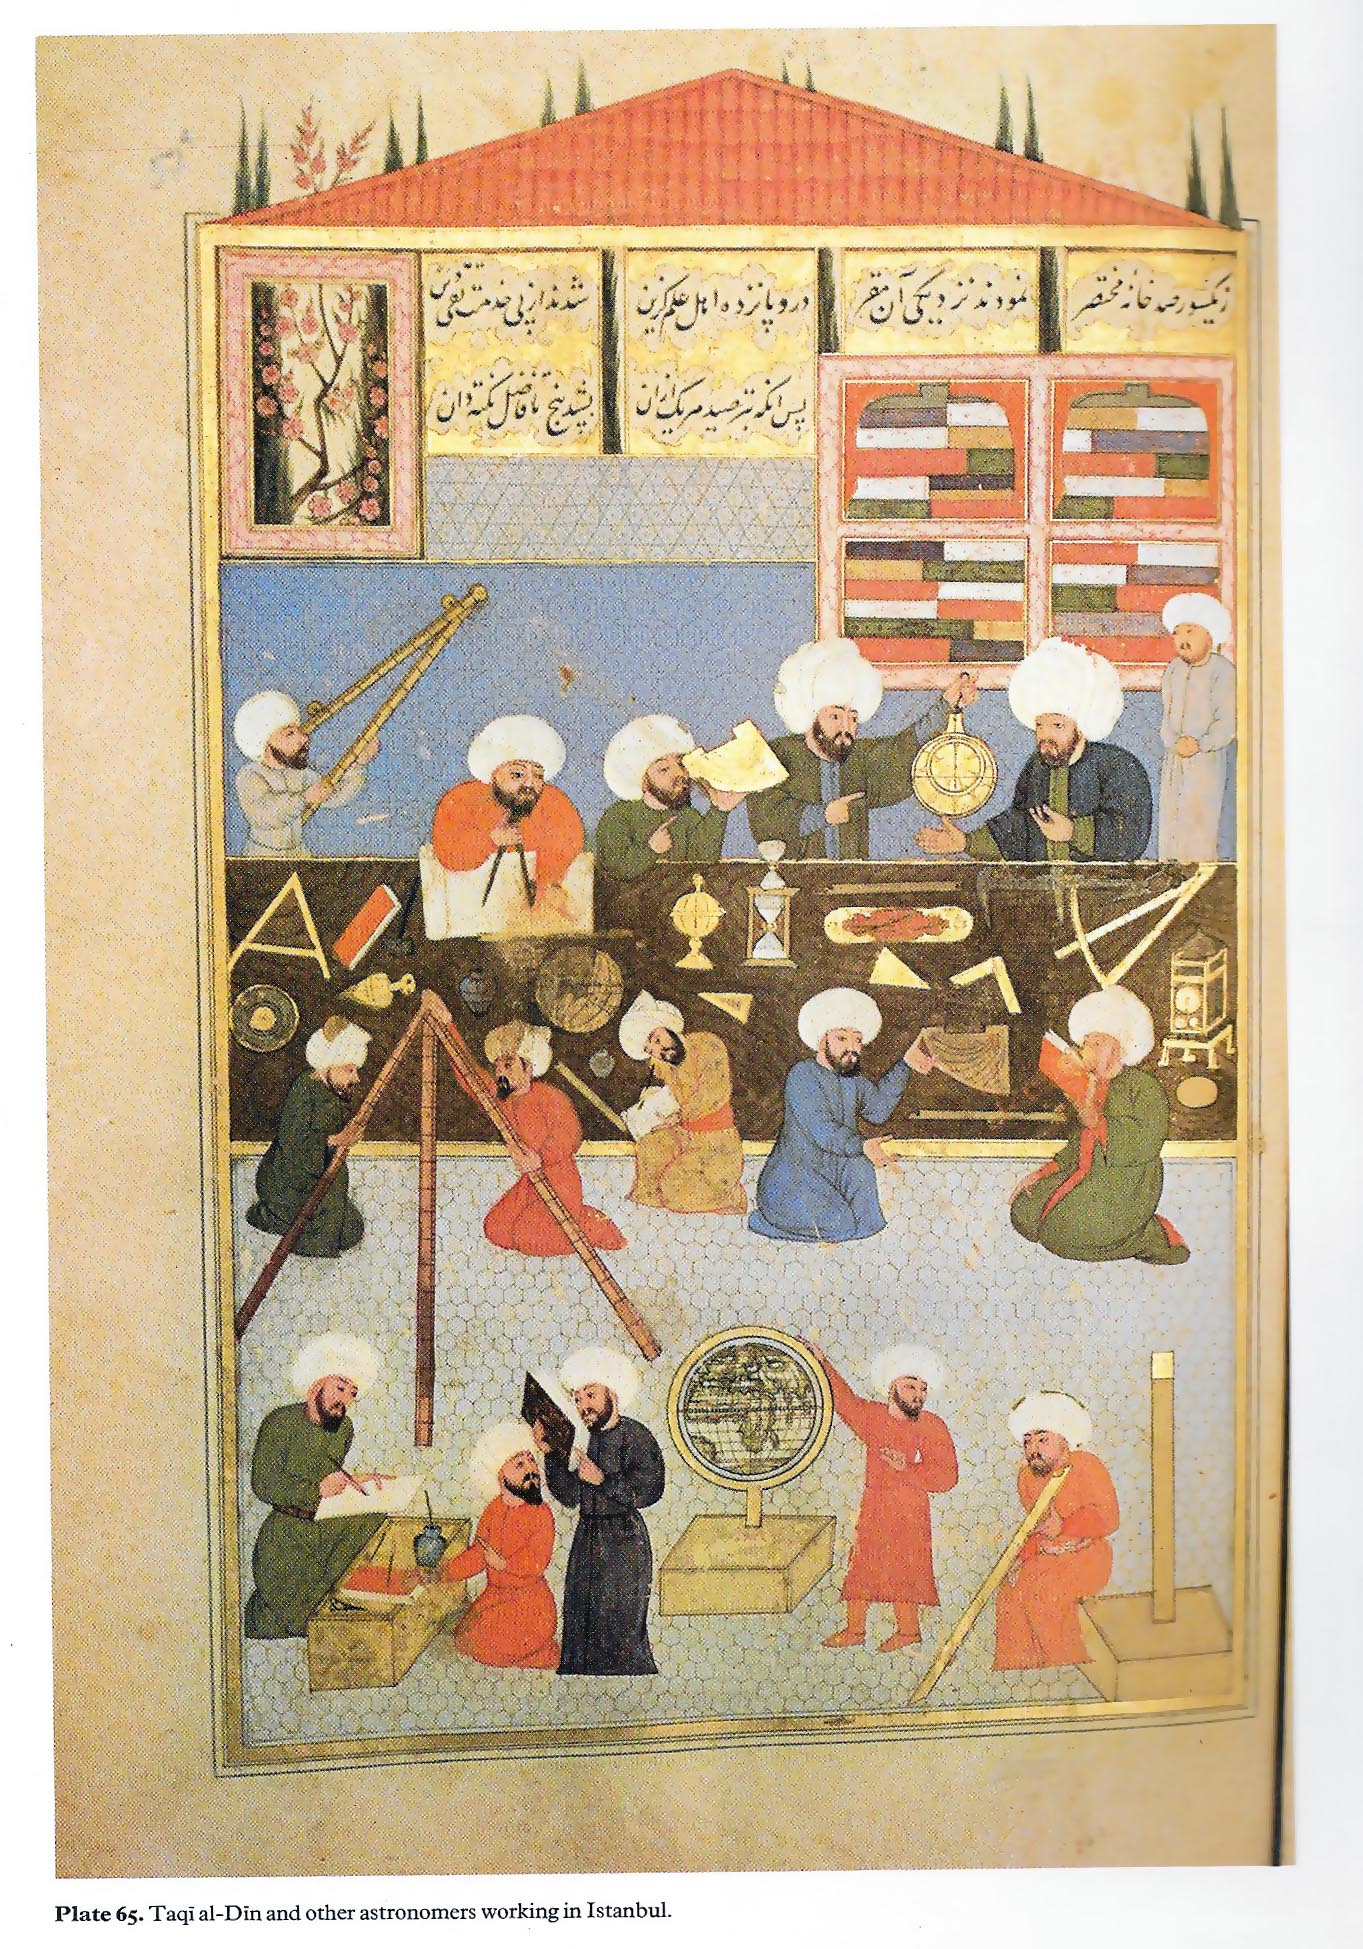 زیکسو رصد خانهٔ مختصر نمودند نزدیکی آن مقر درو پانزده اهل علم گزین شدند از پی خدمت تقی دین
پس انکه بترصید هر یک ازان بشد پنج تا فاضل نکته دان
Plate 65. Taqī al-Dīn and other astronomers working in Istanbul.